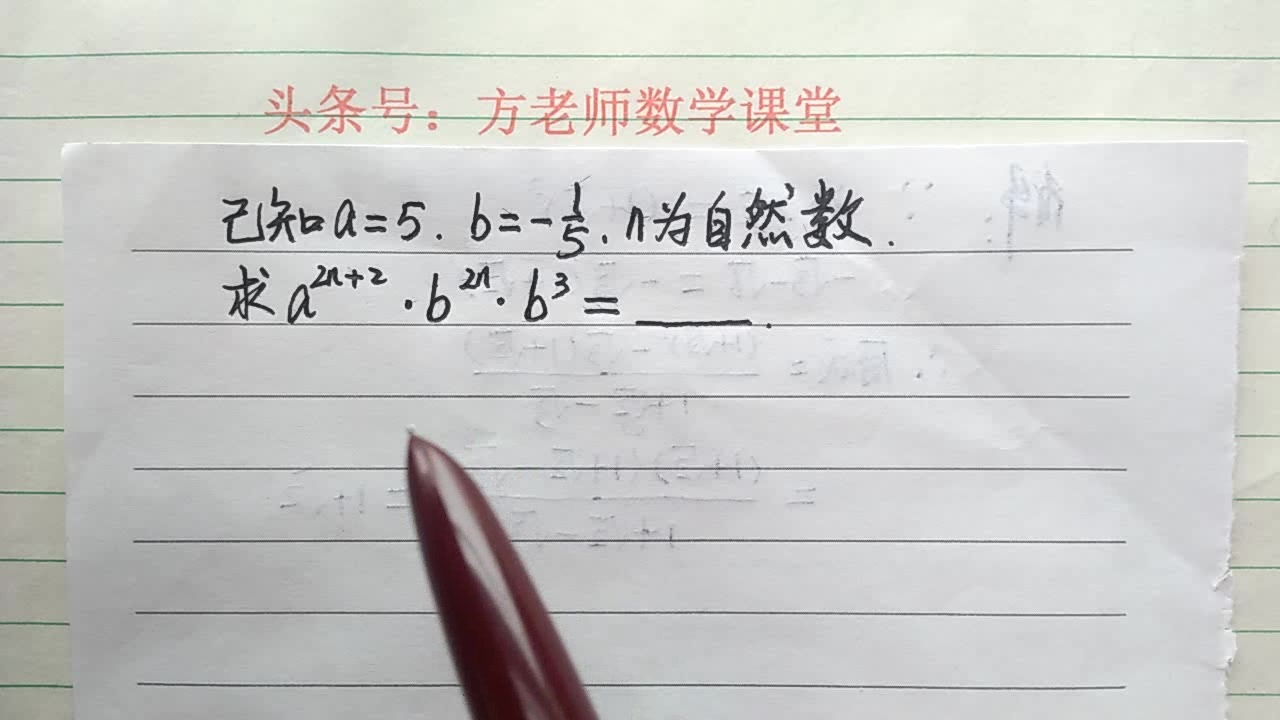 头条号：方老师数学课堂
已知a=5.b=-1/5.n为自然数.
求a^{2n+2}·b^{2n}·b^3=____.